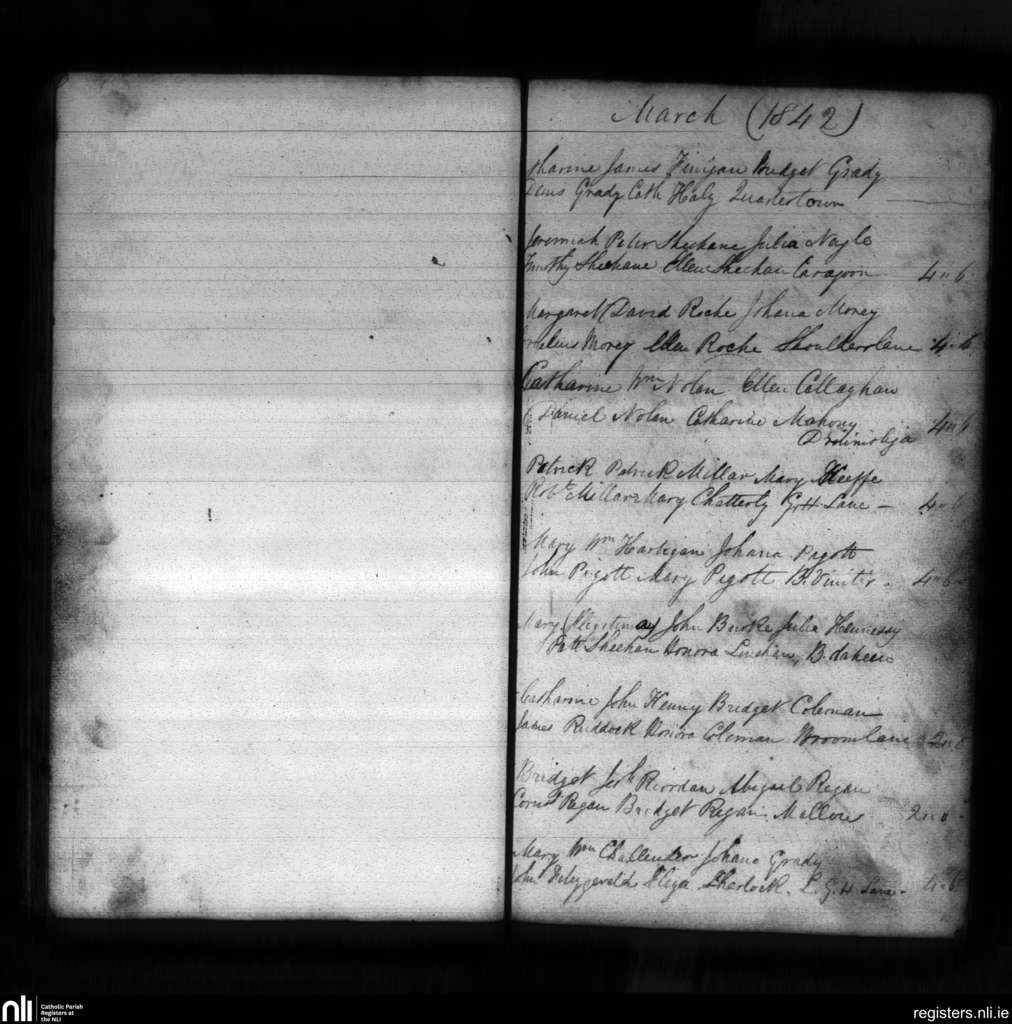 March (1842)
James Finigan Bridget Grady
Grady Cath Haly Quartertown
Jeremiah Peter Sheehane Julia Nagle
Timothy Sheehane Ellen Sheehan 4 " 6
Margaret David Roche Johana Morey
Morey Ellen Roche Shoulderlane 4 " 6
Catharine Wm Nolan Ellen Callaghan
Daniel Nolan Catharine Mahony 4 " 6
Patrick Patrick Millar Mary Keeffe
Robt Millar Mary Chatterly Gt H Lane — 4 "
Mary Wm Hartigan Johana Pigott
John Pigott Mary Pigott B. 4 " 6
Mary John Burke Julia Hennessy
Patt Sheehan Honora Linehan, B.
Catharine John Kenny Bridget Coleman
James Ruddock Honora Coleman Broomlane 2 " 6
Bridget Jerh Riordan Abigail Regan
Corns Regan Bridget Regan Mallow 2 " 0
Mary Wm Johana Grady
Fitzgerald Eliza Sherlock. L. G. H Lane - 4 " 6
nli
Catholic Parish
Registers at
the NLI
registers.nli.ie